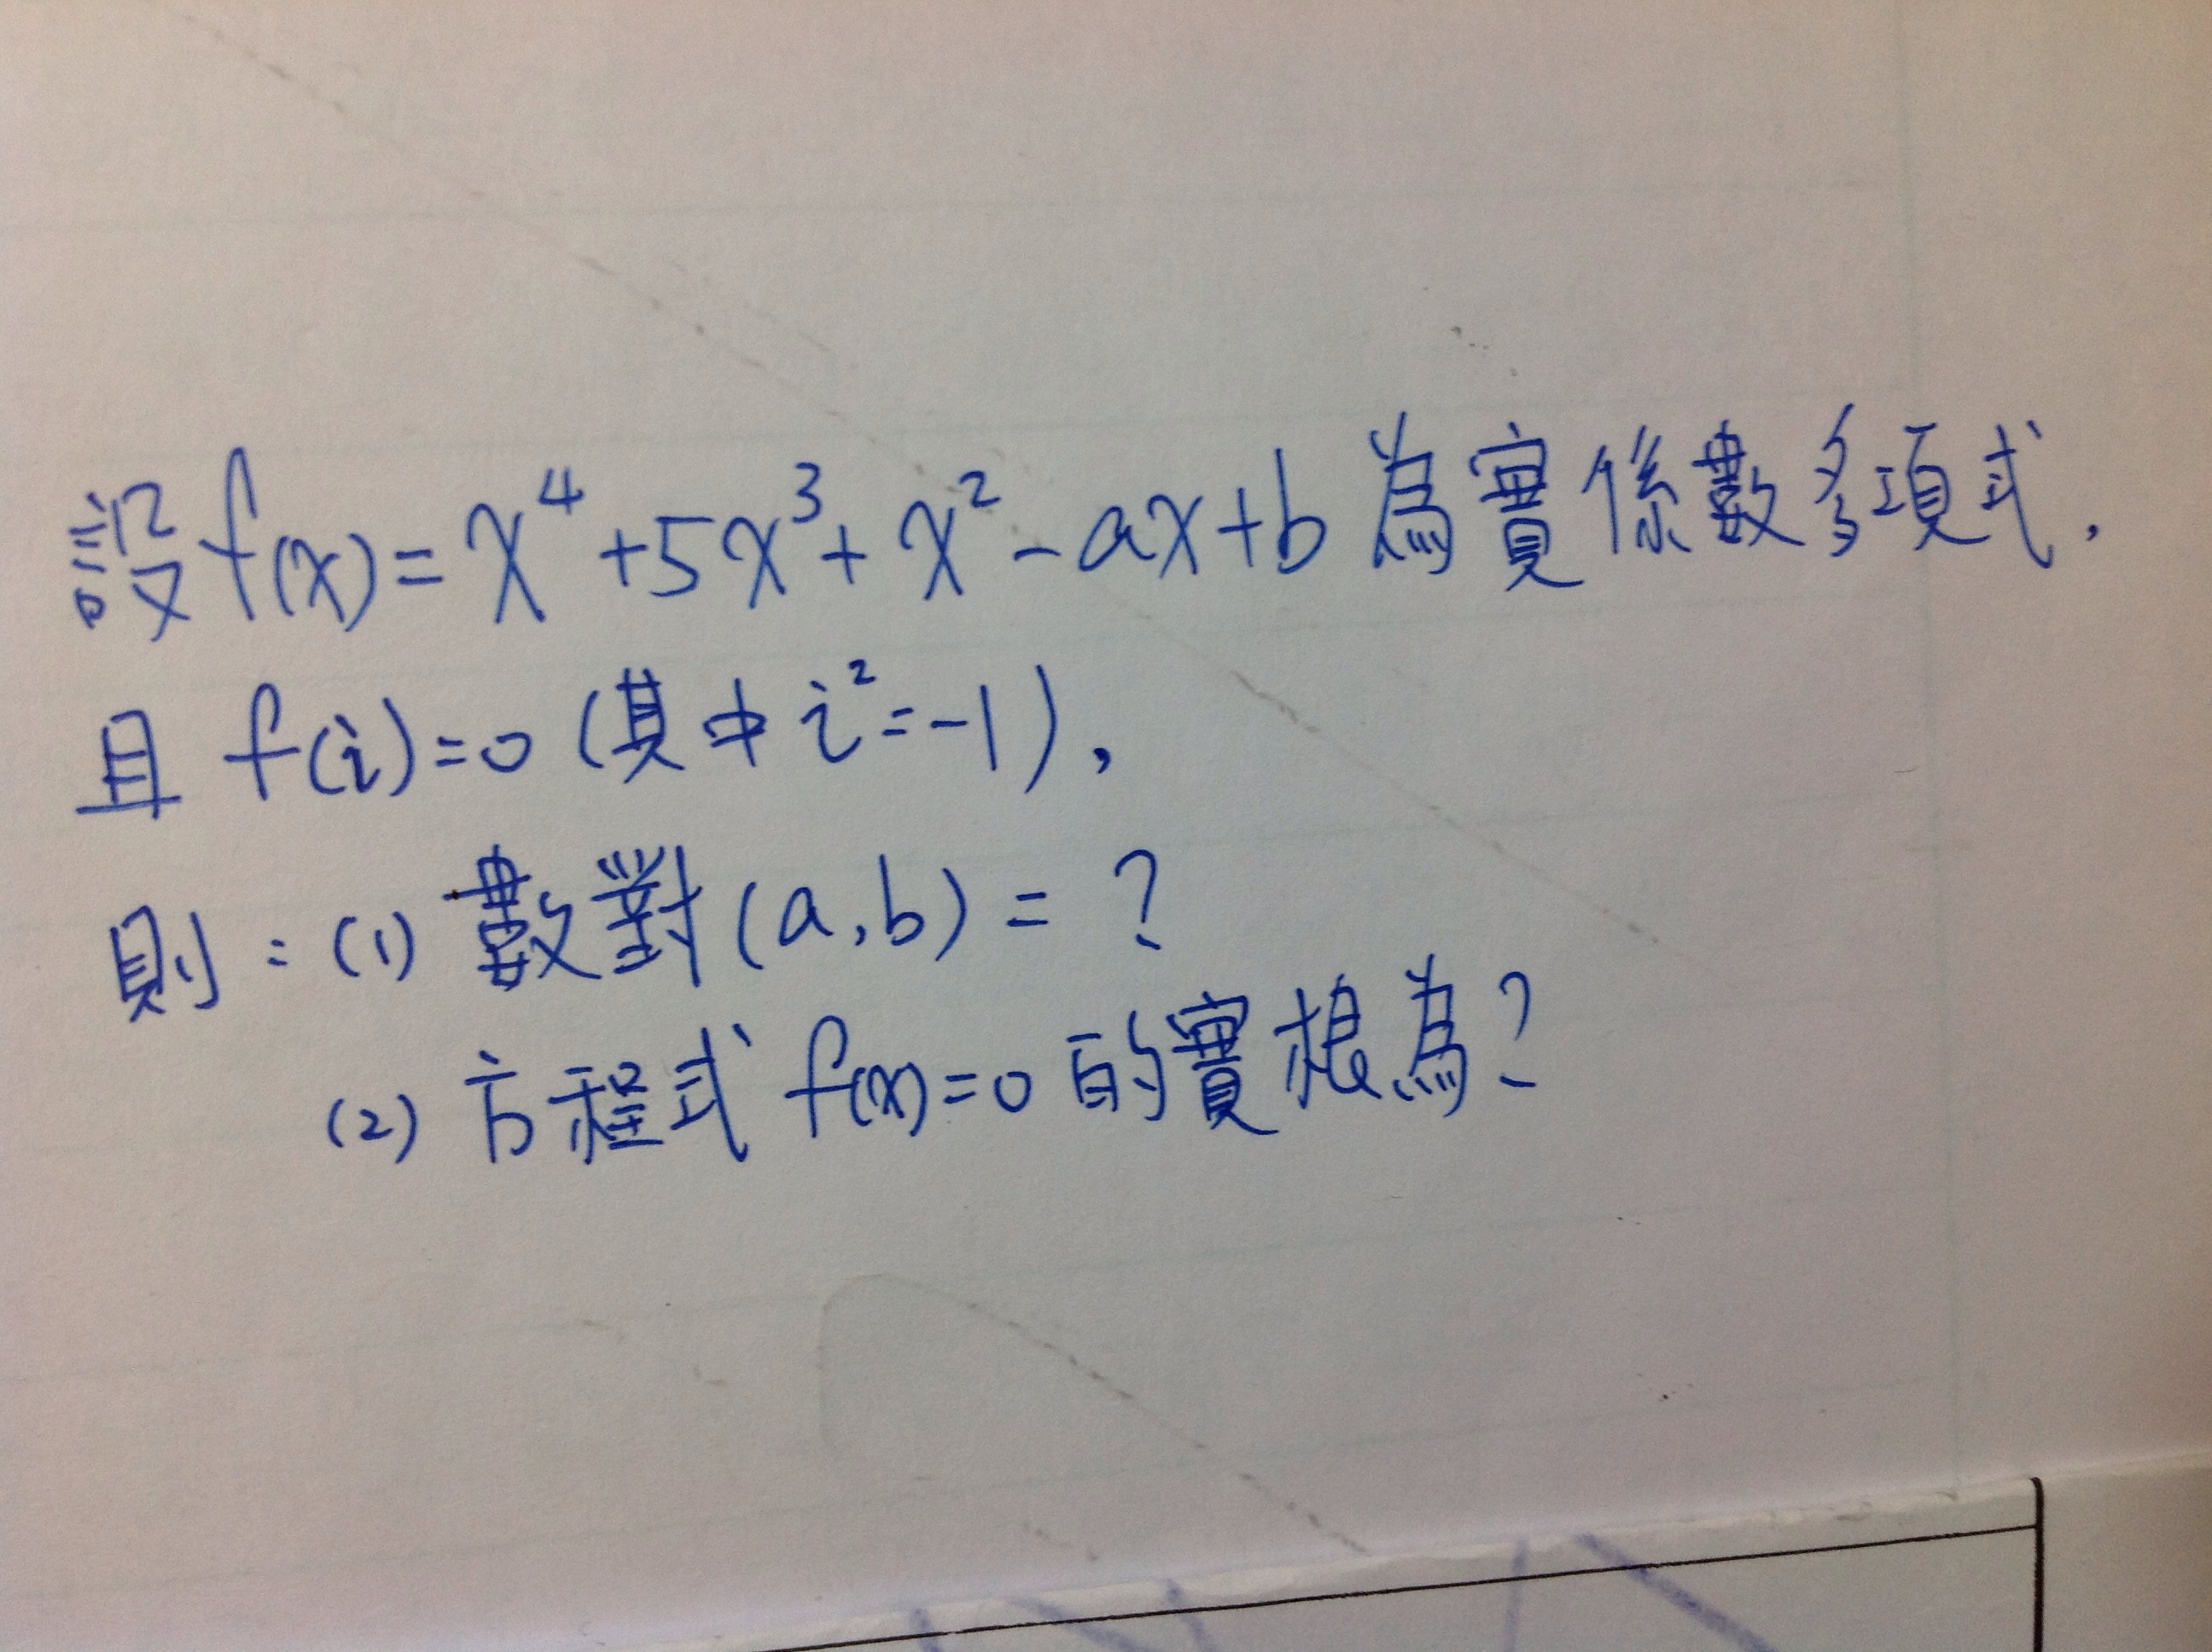 設f(x)=x⁴+5x³+x²-ax+b為實係數多項式,
且 f(i)=0 (其中i²=-1),
則:(1) 數對(a,b)=?
(2) 方程式 f(x)=0的實根為?